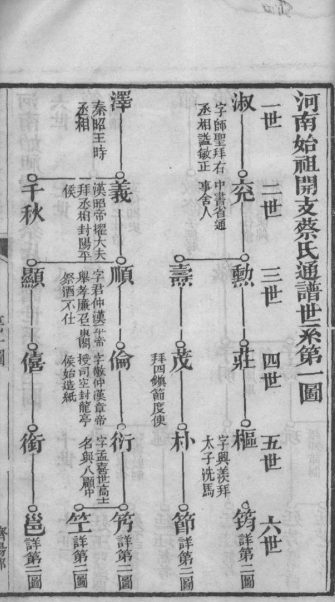 河南始祖開支蔡氏通譜世系第一圖
一世
二世
三世
四世
五世
六世
淑
字師聖拜右
丞相謚敏正
兖
中書省通
事舍人
勲
莊
樞
字興羨拜
太子洗馬
筠
詳第二圖
壽
茂
拜四鎮節度使
朴
節
詳第二圖
澤
秦昭王時
丞相
義
漢昭帝擢大夫
拜丞相封陽平
侯
順
字君仲漢平帝
舉孝廉召東閣
祭酒不仕
倫
字敬仲漢章帝
授司空封龍亭
侯始造紙
衍
字孟喜世高士
名與八顧中
竻
詳第二圖
笁
詳第二圖
千秋
顯
僖
衜
邕
詳第二圖
濟陽郡